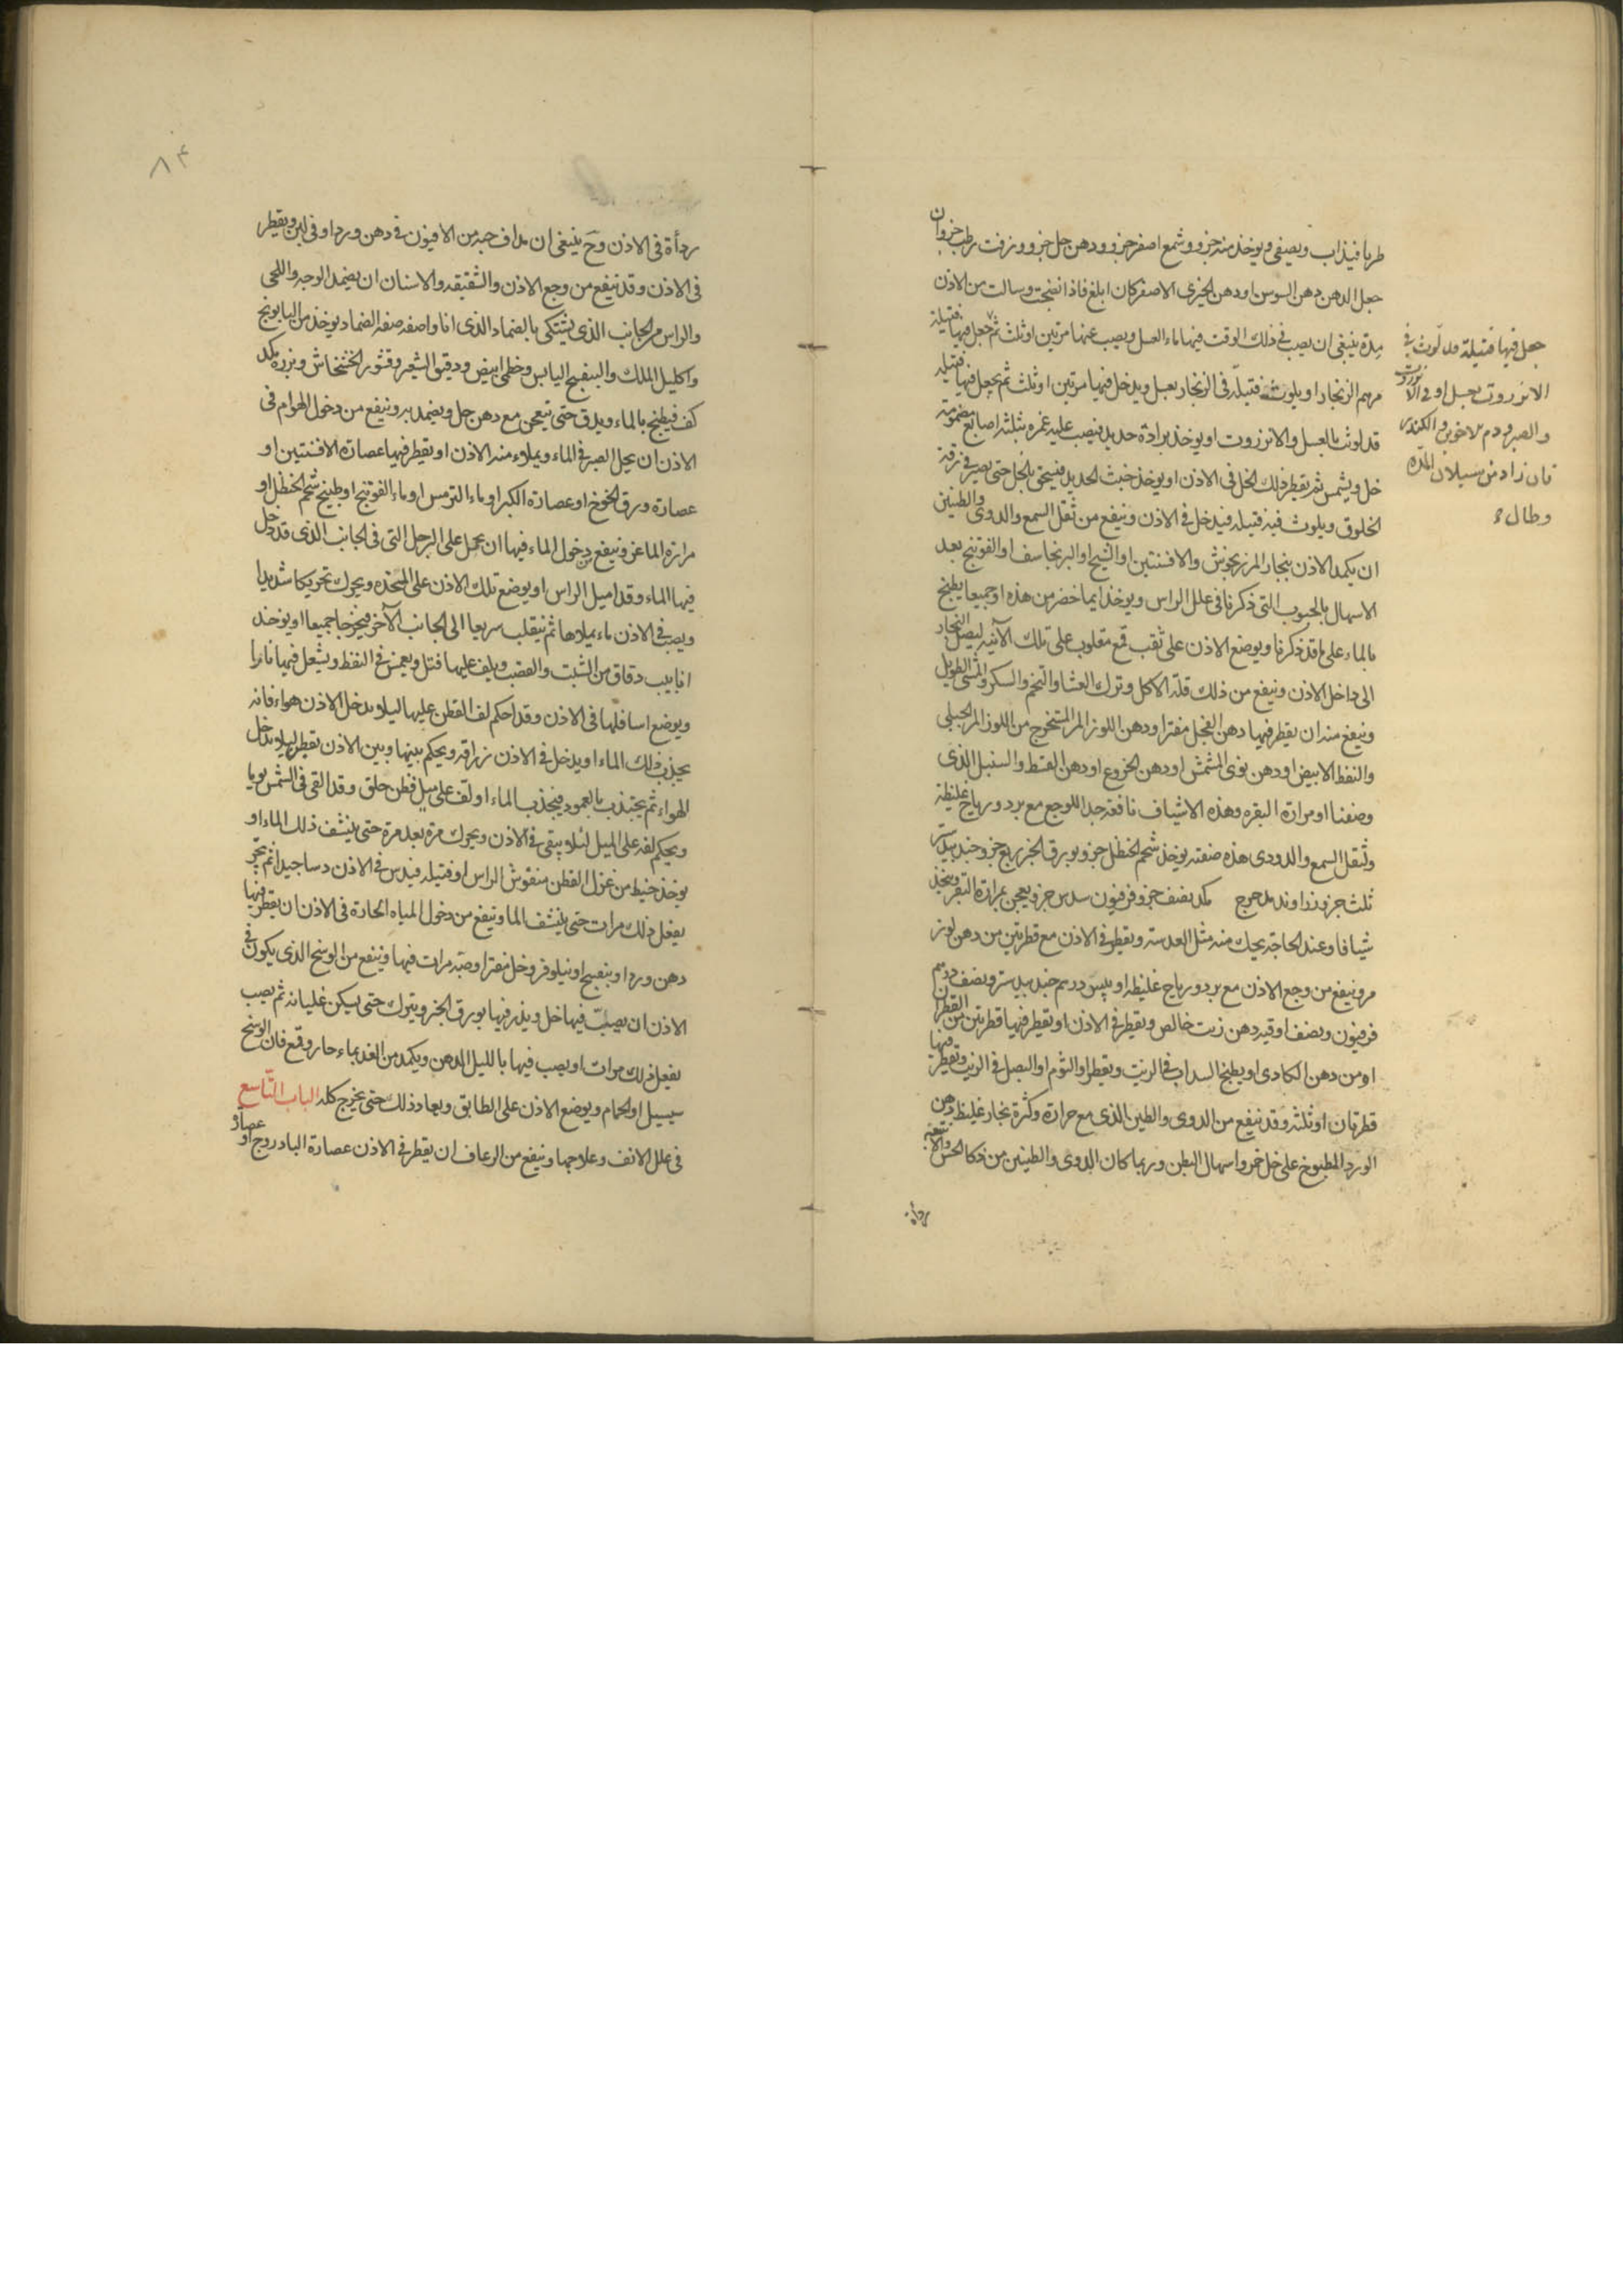 طريا فيذاب ويصفى ويوخذ منه جزو وشمع اصفر جزو ودهن حل جزو وزفت رطب جزو وان
جعل الدهن دهن السوسن او دهن الخيرى الاصفر كان ابلغ فاذا نضجت وسالت من الاذن
مدة ينبغى ان يصب فى ذلك الوقت فيها ماء العسل ويصب عنها مرتين او ثلث ثم يجعل فيها فتيلة
مرهم الزنجار او يلوث فتيلة فى الزنجار بعسل ويدخل فيها مرتين او ثلث ثم يجعل فيها فتيله
قد لوث بالعسل والانزروت او يوخذ برادة حديد فيصب عليه غمره بثلثه اصابع مضمومة
خل ويشمس ثم يقطر ذلك الخل فى الاذن او يوخذ خبث الحديد فيسحق بالخل حتى يصير فى
الخلوق ويلوث فيه فتيله فيدخل فى الاذن وينفع من ثقل السمع والدوى والطنين
ان يكمد الاذن ببخار المرزنجوش والافسنتين او الشيح او البرنجاسف او الفوتنج بعد
الاسهال بالحبوب التى ذكرنا فى علل الراس ويوخذ ايما حضر من هذه او جميعا يطبخ
بالماء على ما قد ذكرنا ويوضع الاذن على ثقب قمع مقلوب على تلك الآنيه ليصل البخار
الى داخل الاذن وينفع من ذلك قلة الاكل وترك العشا والتخم والسكر والمشى الطويل
وينفع منه ان يقطر فيها دهن الفجل مفترا او دهن اللوز المر المستخرج من اللوز المر الجبلى
والنفط الابيض او دهن نوى المشمش او دهن الخروع او دهن القسط والسنبل الذى
وصفنا او مرارة البقره وهذه الاشياف نافعة جدا للوجع مع برد ورياح غليظة
ولثقل السمع والدوى هذه صفته يوخذ شحم الحنظل جزو بورق الخبز ربع جزو جندبيدستر
ثلث جزو زراوند مدحرج مكد نصف جزو فرفيون سدس جزو يعجن بمرارة البقر ويتخذ
شيافا وعند الحاجة يحك منه مثل العدسة ويقطر فى الاذن مع قطرتين من دهن لوز
مر وينفع من وجع الاذن مع برد ورياح غليظه درهم جندبيدستر ونصف درهم
فرفيون ونصف اوقيه دهن زيت خالص ويقطر فى الاذن او يقطر فيها قطرتين من القطران
او من دهن الكادى او يطبخ السداب فى الزيت ويقطر او الثوم او البصل فى الزيت ويقطر فيها
قطرتان او ثلثه وقد ينفع من الدوى والطنين الذى مع حرارة وكثرة بخار غليظ دهن
الورد المطبوخ على خل خمر واسهال البطن وربما كان الدوى والطنين من ذكا الحس
رداة
جعل فيها فتيلة قد لوث فى
الانزروت بعسل او فى الانزروت
والصبر ودم الاخوين والكندر
فان زاد من سيلان المدة
وطال
٨٤
رداة فى الاذن وح ينبغى ان يداف حبه من الافيون فى دهن ورد او فى لبن ويقطر
فى الاذن وقد ينفع من وجع الاذن والشقيقه والاسنان ان يضمد الوجه واللحى
والراس من الجانب الذى يشتكى بالضماد الذى انا واصفه صفة الضماد يوخذ من البابونج
واكليل الملك والبنفسج اليابس وخطمى ابيض ودقيق الشعير وقشور الخشخاش وبزره مكد
كف فيطبخ بالماء ويدق حتى يتعجن مع دهن حل ويضمد به وينفع من دخول الهوام فى
الاذن ان يحل الصبر فى الماء ويملاء منه الاذن او يقطر فيها عصارة الافسنتين او
عصارة ورق الخوخ او عصارة الكبر او ماء الترمس او ماء الفوتنج او طبيخ شحم الحنظل او
مرارة الماعز وينفع من دخول الماء فيها ان يحجل على الرجل التى فى الجانب الذى قد دخل
فيها الماء وقد اميل الراس او يوضع تلك الاذن على المخده ويحرك تحريكا شديدا
ويصب فى الاذن ماء يملاها ثم ينقلب سريعا الى الجانب الآخر فيخرجا جميعا او يوخذ
انابيب دقاق من الشبت والقصب ويلف عليها فتل ويغمس فى النفط ويشعل فيها نارا
ويوضع اسافلها فى الاذن وقد احكم لف القطن عليها ليلا يدخل الاذن هواء فانه
يجذب ذلك الماء او يدخل فى الاذن زراقه ويحكم بينها وبين الاذن بقطن ليلا يدخل
الهواء ثم يجتذب بالعمود فينجذب الماء او لف على ميل قطن خلق وقد القى فى الشمس يوما
ويحكم لفه على الميل لئلا يبقى فى الاذن ويحرك مرة بعد مرة حتى ينشف ذلك الماء او
يوخذ خيط من غزل القطن منقوش الراس او فتيله فيدس فى الاذن دسا جيدا ثم يخرج
يفعل ذلك مرات حتى ينشف الما وينفع من دخول المياه الحارة فى الاذن ان يقطر فيها
دهن ورد او بنفسج او نيلوفر وخل مفترا وصبه مرات فيها وينفع من الوسخ الذى يكون فى
الاذن ان يصب فيها خل ويذر فيها بورق الخبز ويترك حتى يسكن غليانه ثم يصب
يفعل ذلك مرات او يصب فيها بالليل الدهن ويكمد من الغد بماء حار وقمع فان الوسخ
يسيل او الحمام ويوضع الاذن على الطابق ويعاد ذلك حتى يخرج كله الباب التاسع
فى علل الانف وعلاجها وينفع من الرعاف ان يقطر فى الاذن عصارة البادروج او عصارة